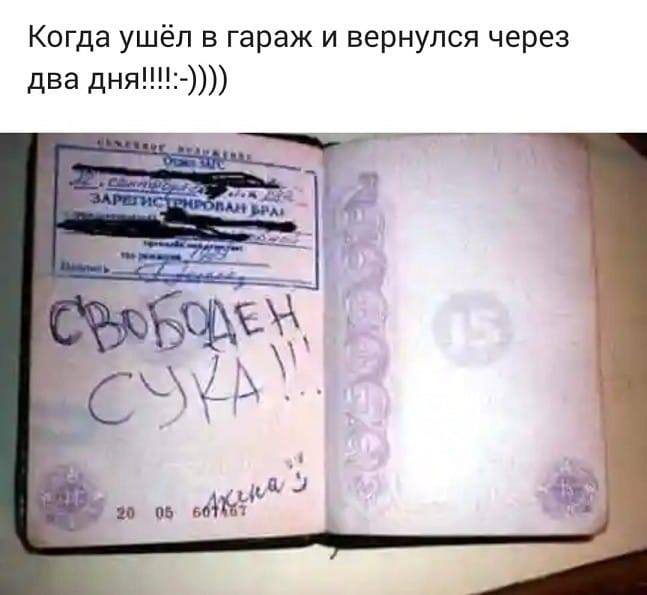 Когда ушёл в гараж и вернулся через
два дня!!!!:-))))
СЕМЕЙНОЕ ПОЛОЖЕНИЕ
Отдел ЗАГС
ЗАРЕГИСТРИРОВАН БРАК
Подпись
15
СВОБОДЕН
СУКА!!!
Жена
20 05